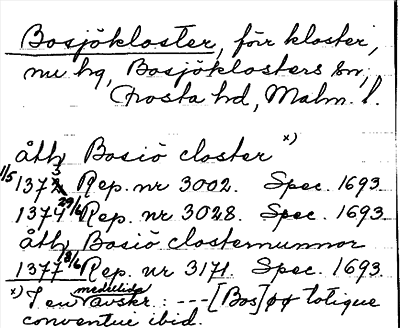 Bosjökloster, förr kloster,
nu hg, Bosjöklosters sn,
Frosta hd, Malm. l.
åth Bosiö closter x)
1/5 1373 Rep. nr 3002. Spec. 1693
1374 29/6 Rep. nr 3028. Spec. 1693
åth Bosiö closternunnor
1377 8/6 Rep. nr 3171. Spec. 1693
x) I en medeltida avskr.: --- [Bos]øø totique
conventui ibid.